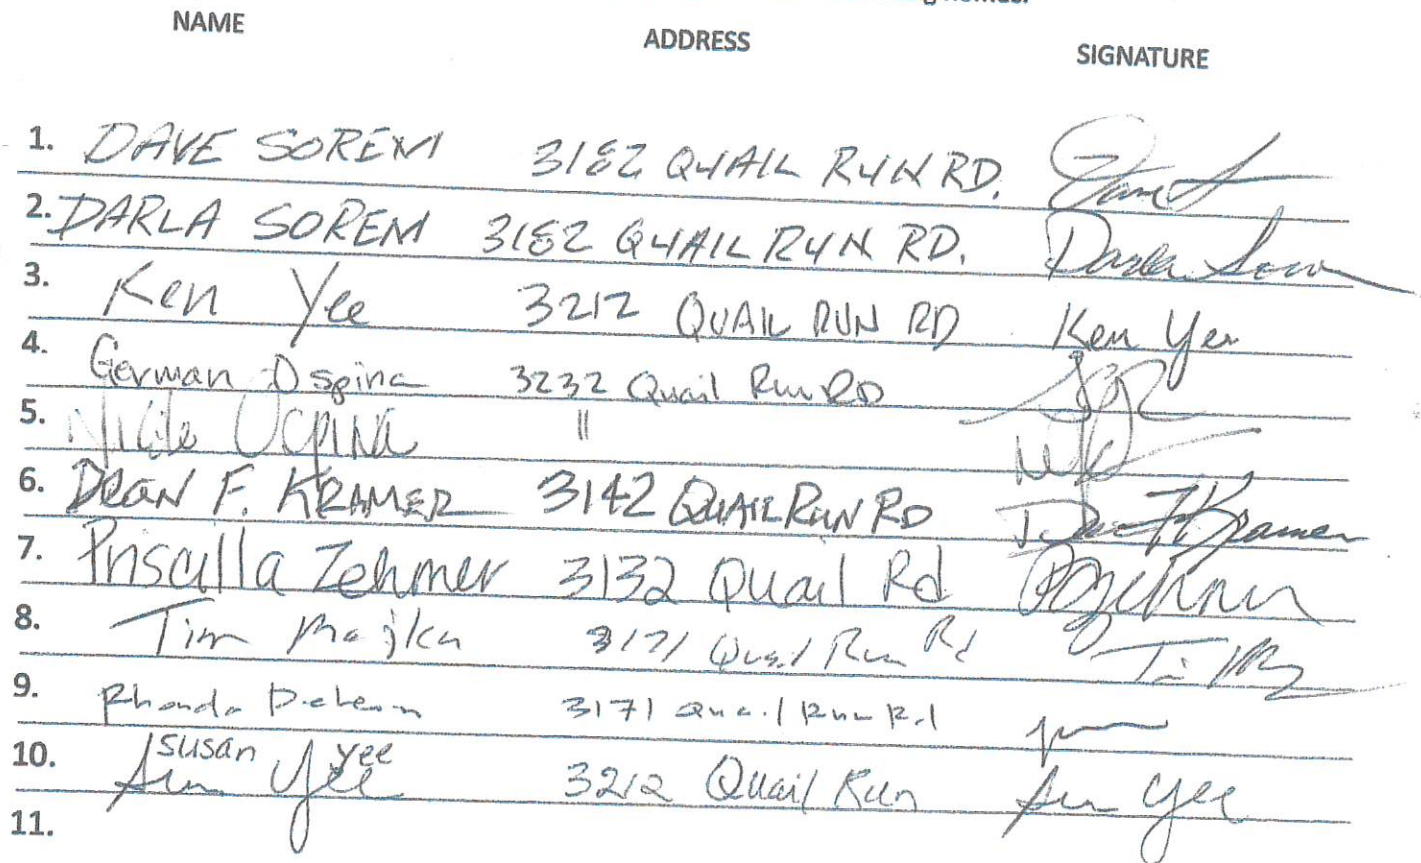 homes.
NAME ADDRESS SIGNATURE
1. DAVE SOREM 3182 QUAIL RUN RD.
2. DARLA SOREM 3182 QUAIL RUN RD. Darla Sorem
3. Ken Yee 3212 QUAIL RUN RD Ken Yee
4. German Ospina 3232 Quail Run RD
5. Ospina "
6. DEAN F. KRAMER 3142 QUAIL RUN RD Dean F Kramer
7. Priscilla Zehmer 3132 Quail Rd PZehmer
8. Tim Majka 3171 Quail Run Rd Tim
9. Rhonda 3171 Quail Run Rd
10. Susan Yee 3212 Quail Run Sun Yee
susan yee
11.